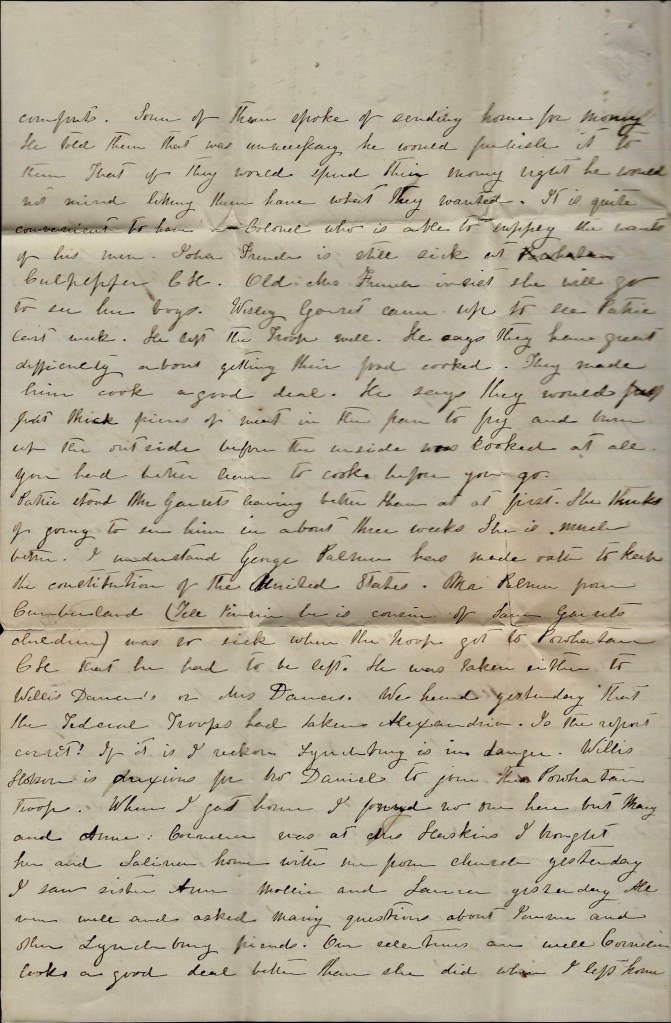 comforts. Some of them spoke of sending home for money
He told them that was unnecessary he would furnish it to
them that if they would spend their money right he would
not mind letting them have what they wanted. It is quite
convenient to have a Colonel who is able to supply the wants
of his men. John French is still sick at
Culpepper CH. Old Mrs French insist she will go
to see her boys. Wesley Garret came up to see Patie
last week. He left the Troop well. He says they have great
difficulty about getting their food cooked. They made
him cook a good deal. He says they would
put thick pieces of meat in the pan to fry and burn
up the outside before the inside was cooked at all.
You had better learn to cook before you go.
Patie stood Mr Garrets leaving better than at at first. She thinks
of going to see him in about three weeks She is much
better. I understand George Palmer has made oath to keep
the constitution of the United States. Palmer from
Cumberland (Tell he is cousin of Sam Garrets
children) was so sick when the troop got to Powhatan
CH that he had to be left. He was taken either to
Willis Dances or Mrs Dances. We heard yesterday that
the Federal Troops had taken Alexandria. Is the report
correct? If it is I reckon Lynchburg is in danger. Willis
Hobson is anxious for bro Daniel to join the Powhatan
Troop. When I got home I found no one here but Mary
and Anne: Cornelia was at Mrs Haskins I brought
her and home with me from church yesterday
I saw sister Ann Mollie and yesterday All
were well and asked many questions about and
other Lynchburg friends. Our relations are well Cornelia
looks a good deal better than she did when I left home